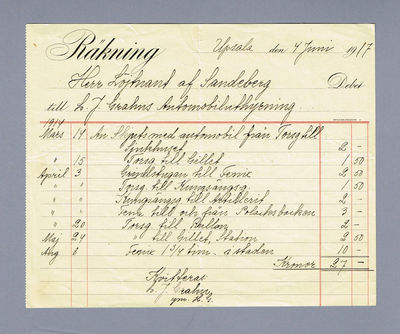 Räkning Upsala den 4 Juni 1917
Herr Löjtnant af Sandeberg Debet
till L. J. Grahns Automobiluthyrning
1917
Mars 14 An Skjuts med automobil från Torsg till
Sjukhuset 2 –
" 15 Torsg till Gillet 1 50
April 3 till Fenix 2 –
" " Torsg. till Kungsängsg. 1 50
" " Kungsängsg till Artilleriet 2 –
" " Fenix till och från Polacksbacken 3 –
" 20 Torsg till 2 –
Maj 24 " till Gillet, Station 2 50
Aug 6 Fenix 1 3/4 tim. i staden 10 –
Kronor 27 –
Kvitteras
L. J. Grahn
gm. H. G.